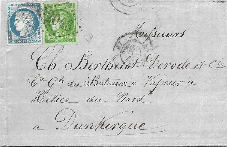 Messieurs
Ch. Berthelot Verode et Cie
Ct Gx du Bateaux à Vapeur à
Hélice du Nord,
à Dunkerque